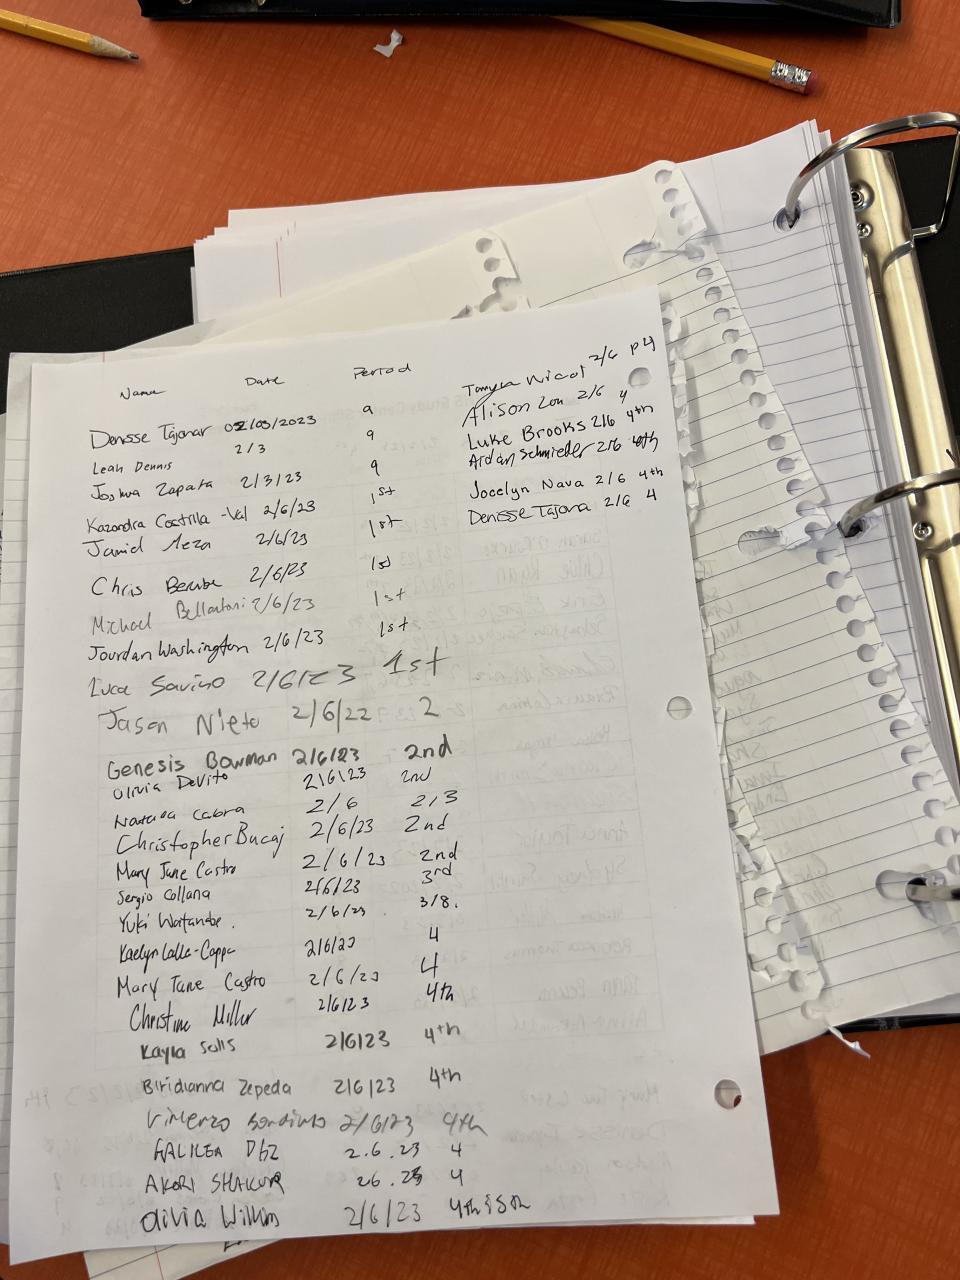 Name Date Period
Denisse Tajonar 02/03/2023 9
Leah Dennis 2/3 9
Joshua Zapata 2/3/23 9
Kazandra Castrilla -Val 2/6/23 1st
Jamid Meza 2/6/23 1st
Chris 2/6/23 1st
Michael 2/6/23 1st
Jourdan Washington 2/6/23 1st
Luca Savino 2/6/23 1st
Jason Nieto 2/6/22 2
Genesis Bowman 2/6/23 2nd
Olivia DeVito 2/6/23 2nd
Cabra 2/6 2/3
Christopher Bucaj 2/6/23 2nd
Mary Jane Castro 2/6/23 2nd
Sergio Collana 2/6/23 3rd
Yuki Watanabe. 2/6/23. 3/8.
Kaelyn Lalle-Cappa 2/6/23 4
Mary Jane Castro 2/6/23 4
Christine Miller 2/6/23 4th
Kayla Solis 2/6/23 4th
Biridianna Zepeda 2/6/23 4th
2/6/23 4th
GALILEA 2.6.23 4
AKORI SHAKUR 26.23 4
Olivia 2/6/23 4th
Nicol 2/6 P4
Alison 2/6 4
Luke Brooks 2/6 4th
Aidan Schmieder 2/6 4th
Jocelyn Nava 2/6 4th
Denisse Tajona 2/6 4